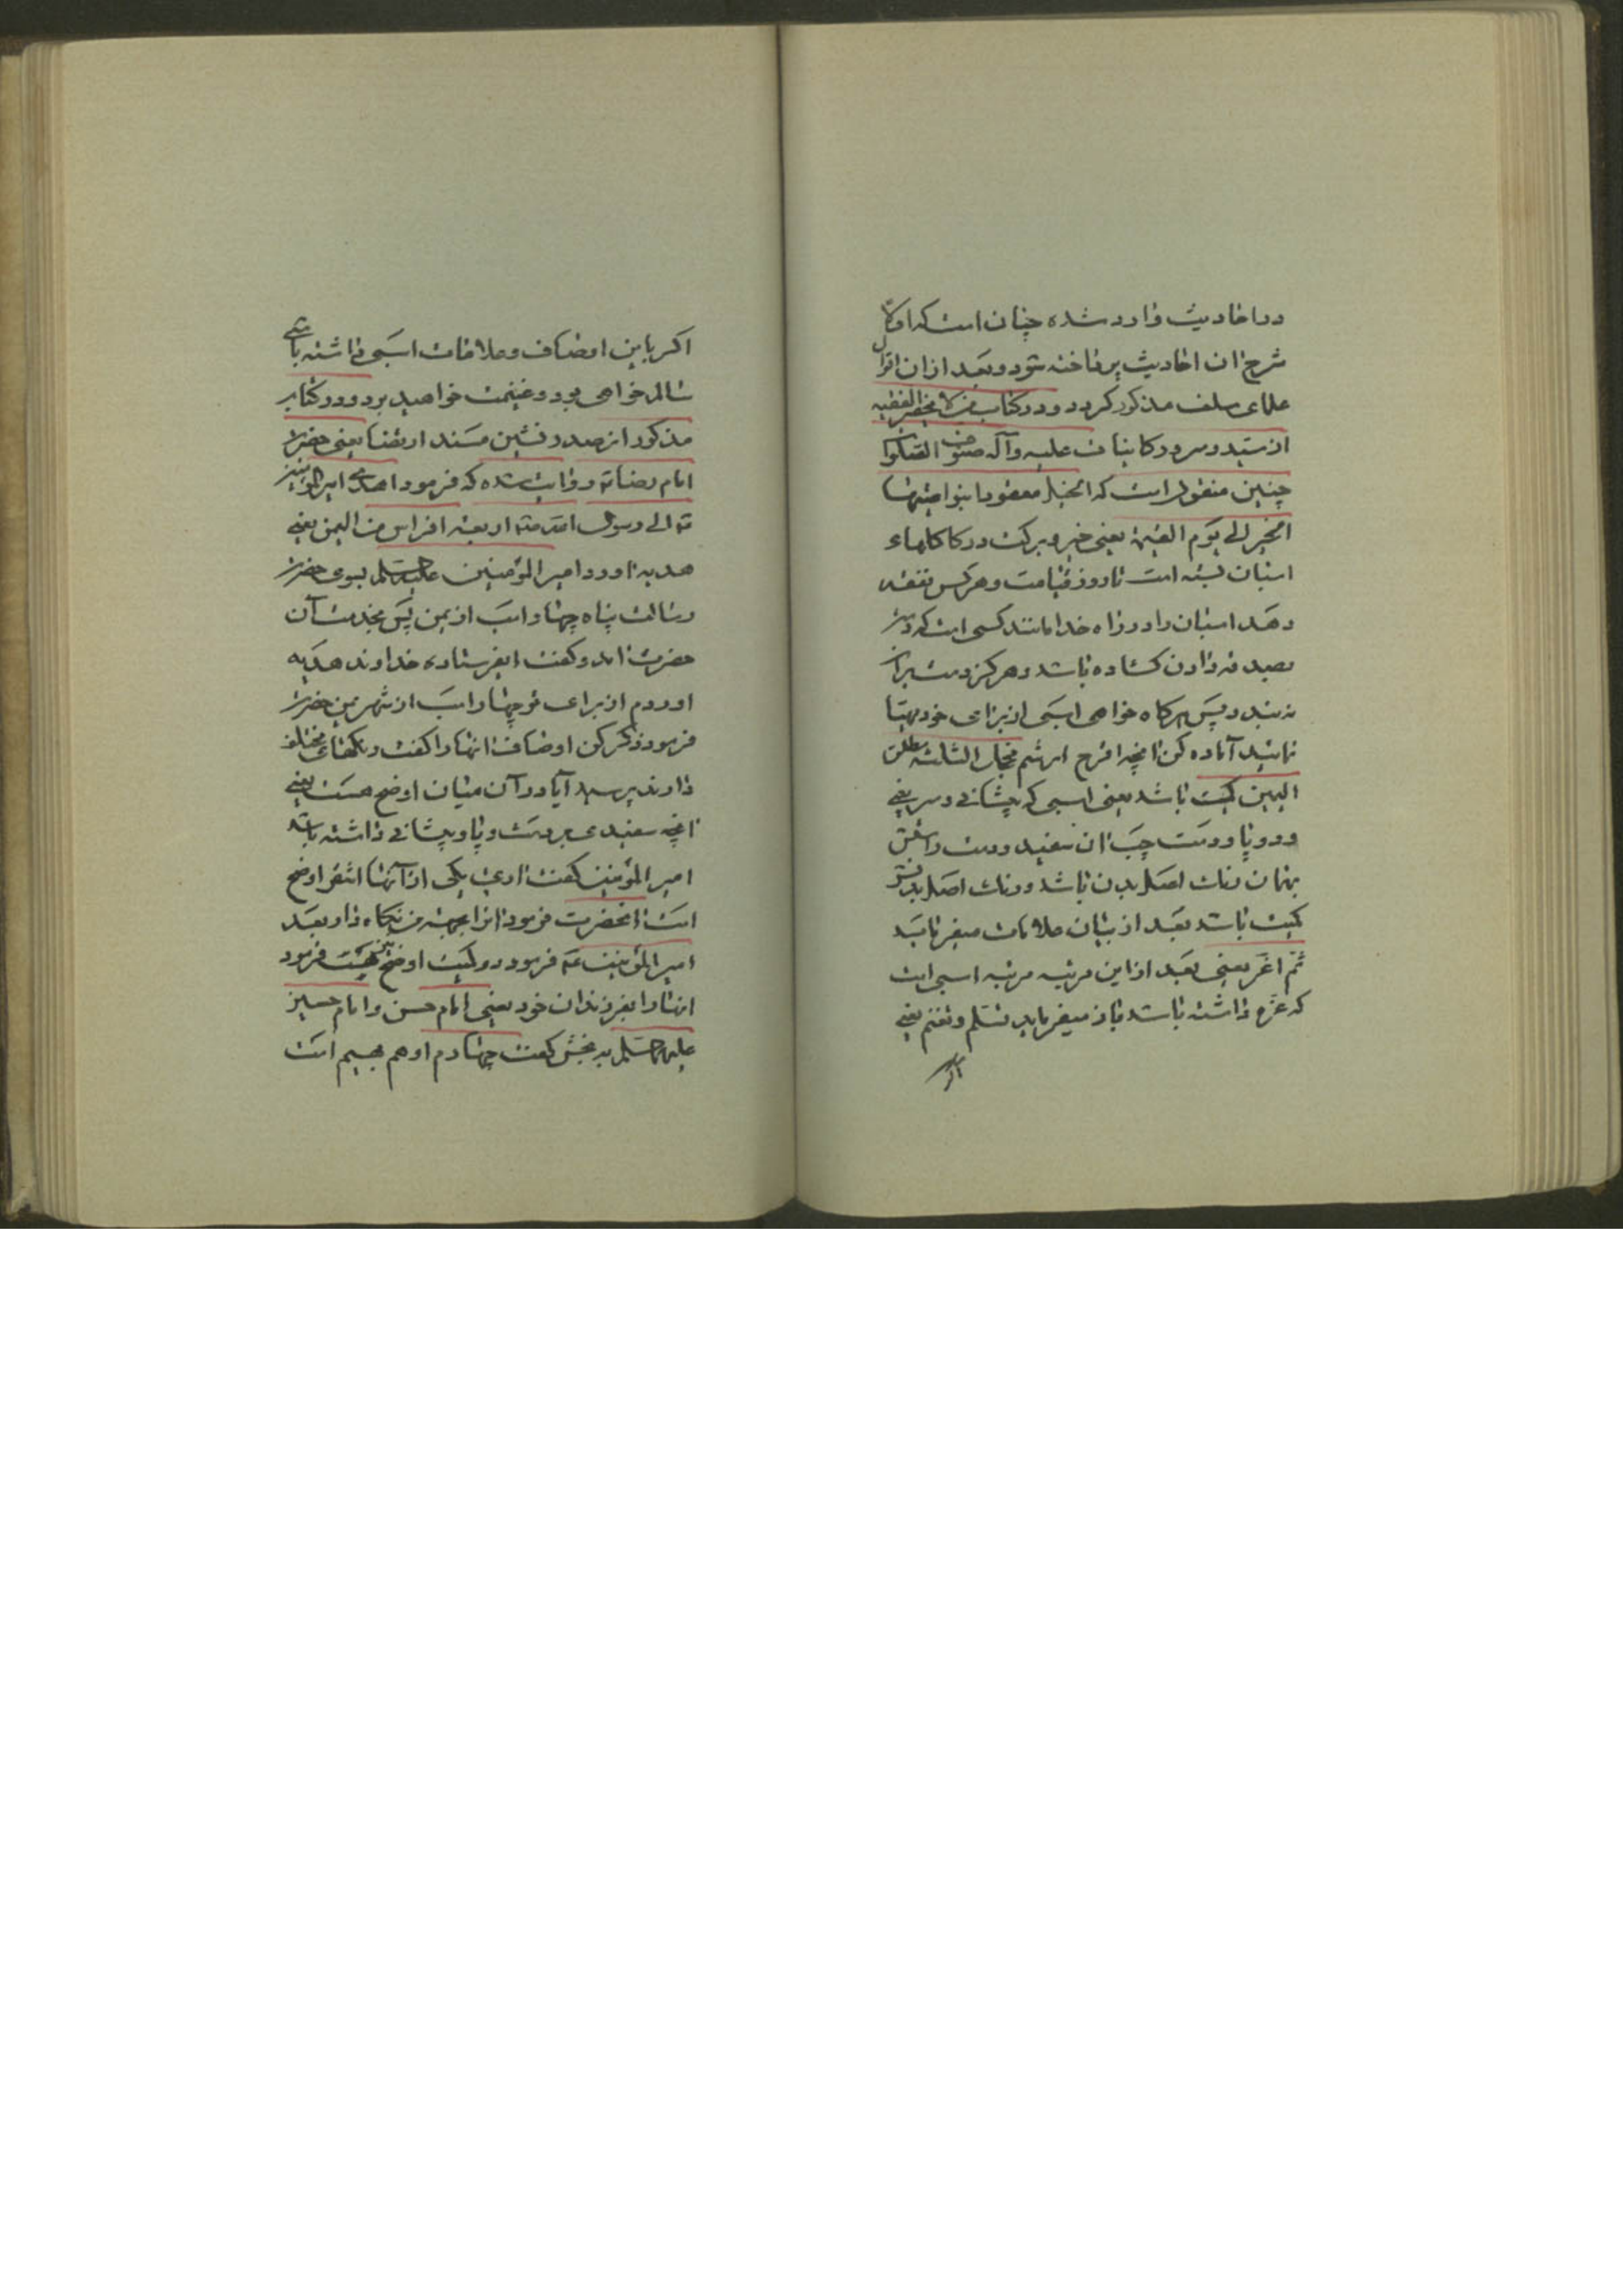 در احادیث وارد شده چنان است که اولا
شرح ان احادیث پرداخته شود و بعد از ان اقوال
علمای سلف مذکور کردد و در کتاب من لا یحضره الفقیه
از سید و سرور کاینات علیه و آله صنوف الصلوات
چنین منقول است که الخیل معقود بنواصیها
الخیر الی یوم القیمة یعنی خیر و برکت در کاکلهاء
اسبان بسته است تا روز قیامت و هرکس نفقه
دهد اسبان را در راه خدا مانند کسی است که دستش
بصدقه دادن کشاده باشد و هرکز دست برآن
نه بندد پس هرکاه خواهی اسبی از برای خود مهیا
نمائید آماده کن انچه اقرح ارثم محجل الثلثه مطلق
الیمین کمیت باشد یعنی اسبی که پیشانی و سر بینی
و دو پا و دست چپ ان سفید و دست راستش
بهمان رنك اصل بدن باشد و رنك اصل بدنش
کمیت باشد بعد از بیان علامات میفرماید
ثم اغر یعنی بعد از این مرتبه مرتبه اسبی است
که غره داشته باشد باز میفرماید تسلم و تغنم یعنی
اکر
اکر باین اوصاف و علامات اسبی داشته باشی
سالم خواهی بود و غنیمت خواهید برد و در کتاب
مذکور از صدر نشین مسند ارتضا یعنی حضرت
امام رضا ع روایت شده که فرمود اهدی امیرالمؤمنین
ع الی رسول الله ص اربعة افراس من الیمن یعنی
هدیه اورد امیر المؤمنین علیه السلم بسوی حضرت
رسالت پناه چهار اسب از یمن پس بخدمت آن
حضرت امد و کفت ایفرستاده خداوند هدیه
اوردم از برای تو چهار اسب از شهر یمن حضرت
فرمود ذکر کن اوصاف انها را کفت رنکهای مختلف
دارند پرسید آیا در آن میان اوضح هست یعنی
انچه سفیدی بر دست و پا و پیشانی داشته باشد
امیر المؤمنین کفت اری یکی از آنها اشقر اوضح
است انحضرت فرمود انرا بجهة من نکاه دار بعد
امیر المؤمنین ع فرمود دو کمیت اوضح نیز هست فرمود
انها را بفرزندان خود یعنی امام حسن و امام حسین
علیهما السلم به بخش کفت چهارم ادهم بهیم است